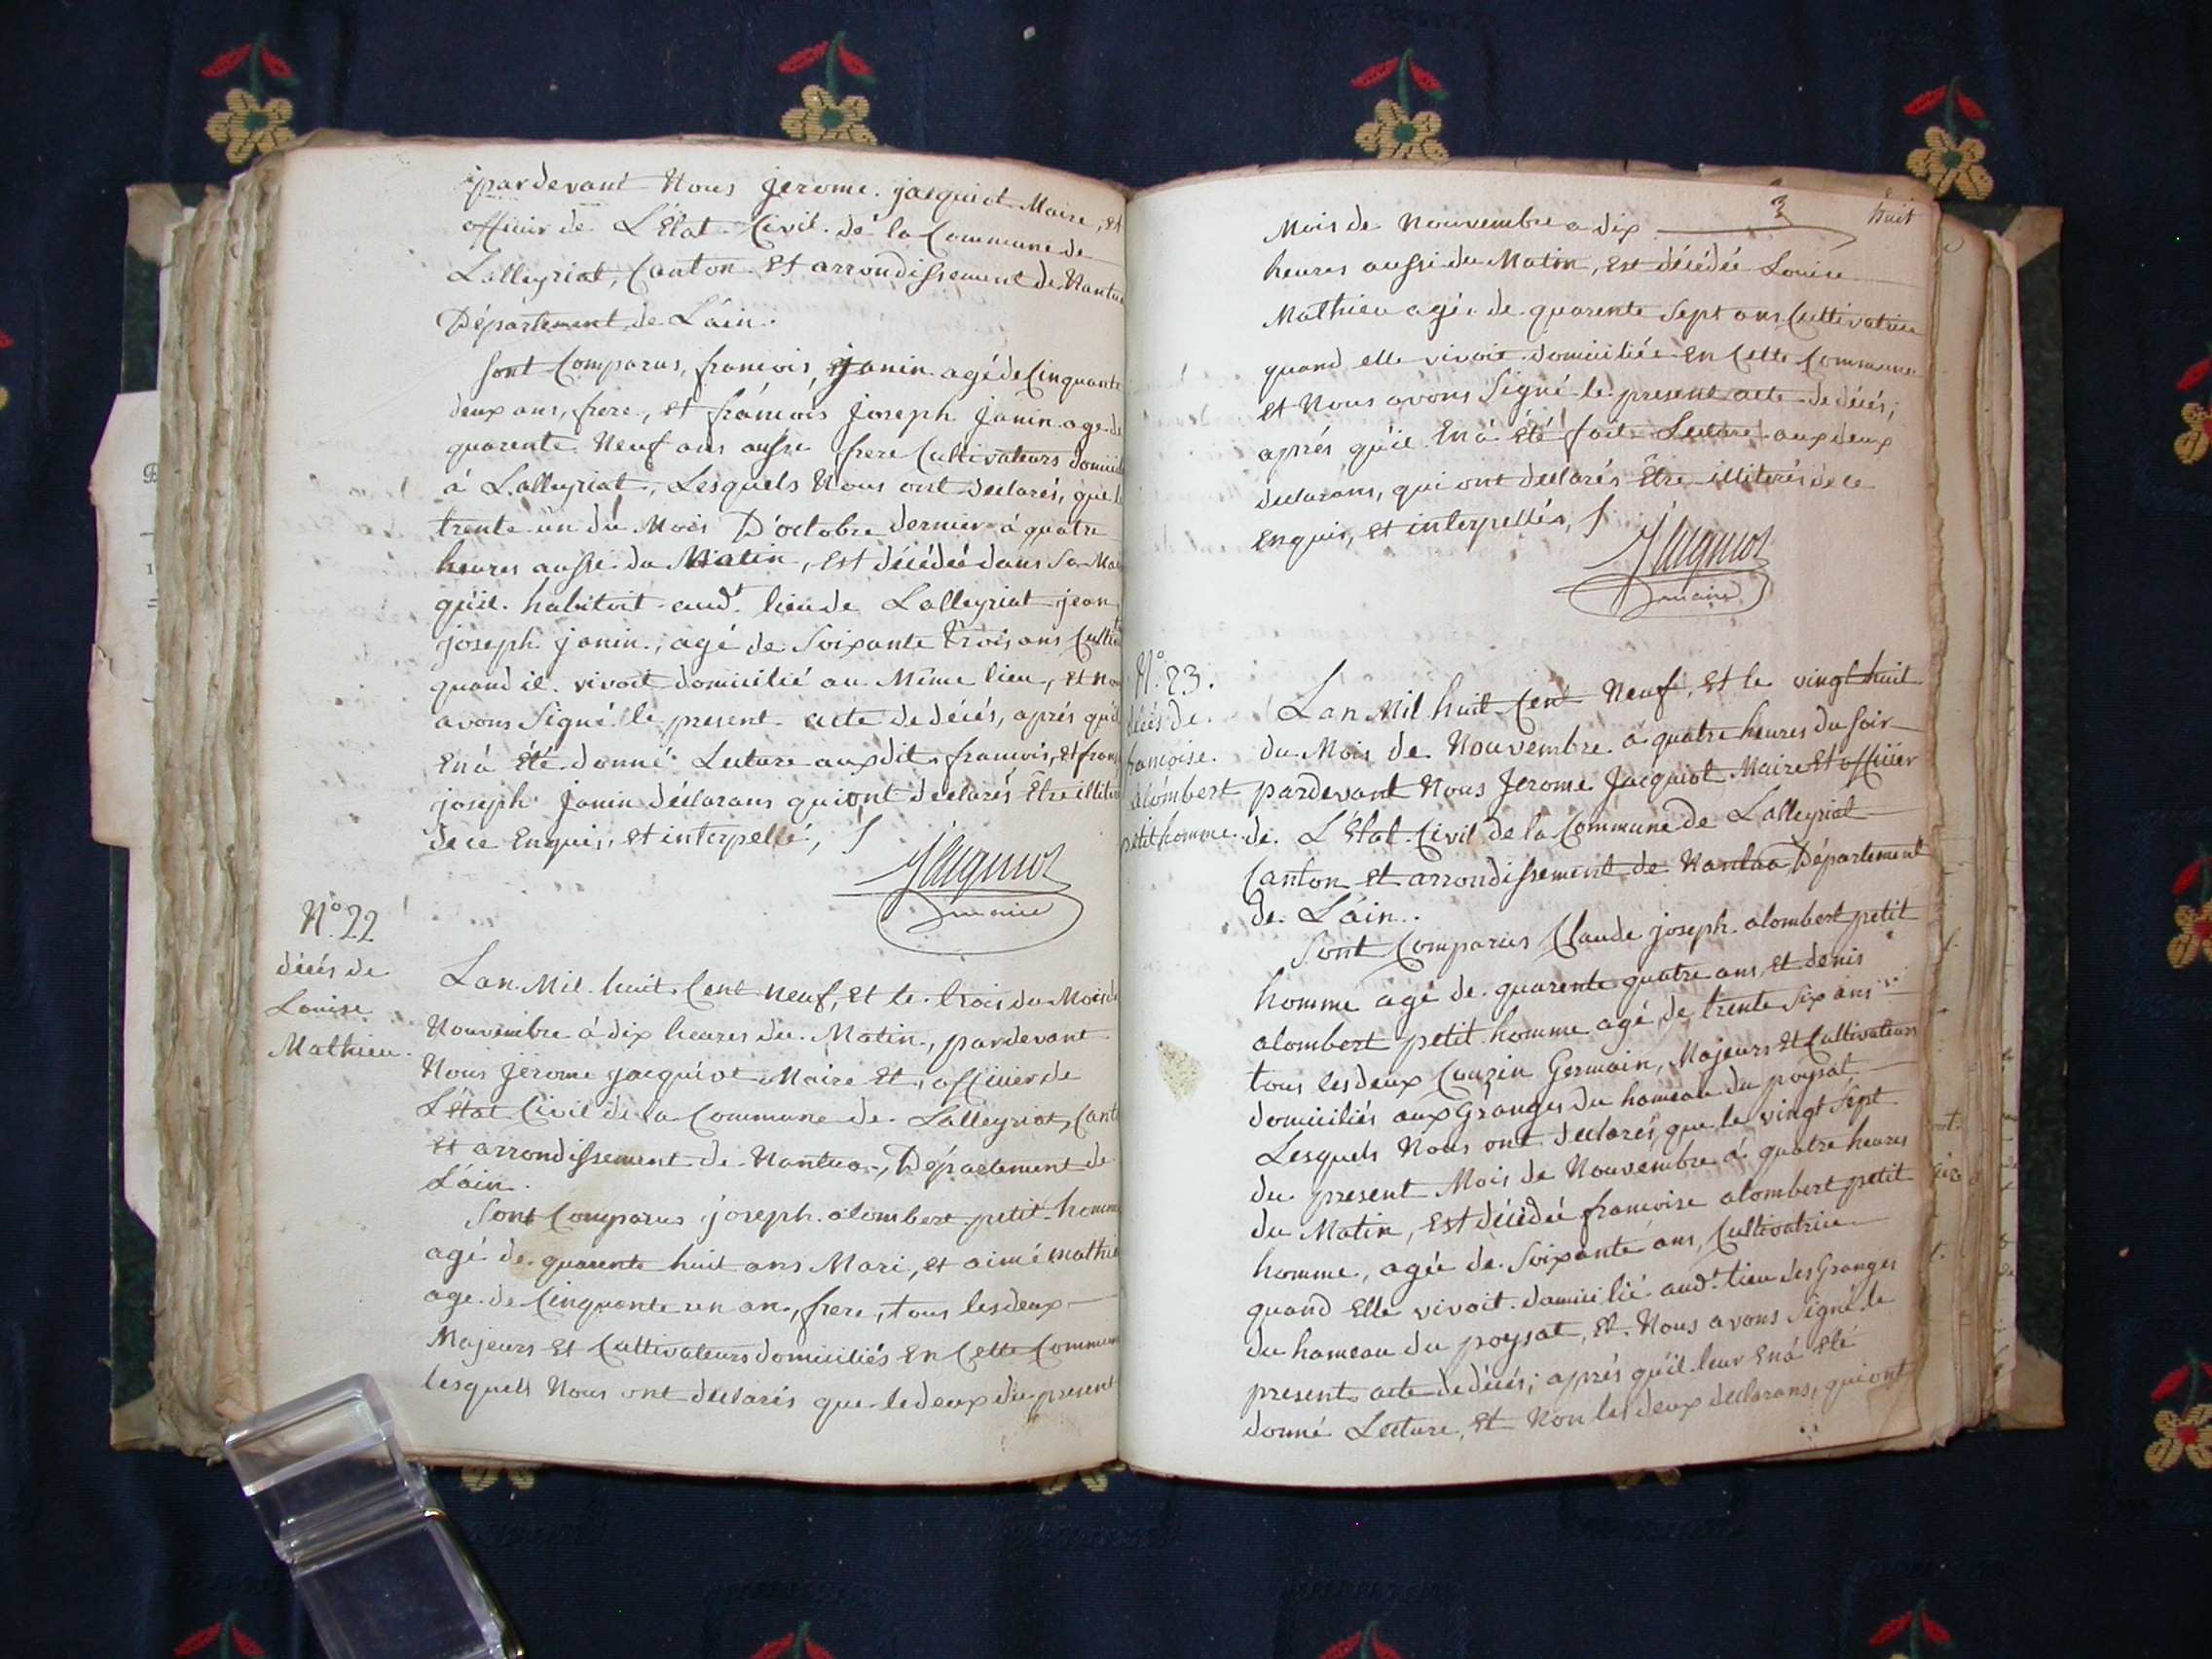 pardevant Nous jerome jacquiot Maire, et
officier de L'Etat Civil de la Commune de
Lalleyriat, Canton Et arrondissement de Nantua
Département de L'ain.
Sont Comparus, francois, janin agé de Cinquante
deux ans, frere, et francois joseph janin agé de
quarente Neuf ans aussi frere Cultivateurs domicil
á Lalleyriat, Lesquels Nous ont declarés, que le
trente un du Mois D'octobre dernier á quatre
heures aussi du Matin, est décédé dans Sa Mai
qu'il habitoit audt. lieu de Lalleyriat jean
joseph janin, agé de Soixante trois ans Cultiv
quand il vivoit domicilié au Même lieu, et nou
avons Signé le present acte de décés, aprés qu'il
En á Eté donné Lecture auxdits francois, Et franc
joseph janin déclarans qui ont declarés Etre illiter
de ce Enquis, et interpellé,
jacquiot
maire
N.º 22
décés de
Louise
Mathieu.
Lan Mil huit Cent neuf, Et le trois du Mois de
Nouvembre á dix heures du Matin, pardevant
Nous jerome jacquiot Maire Et officier de
L'état Civil de la Commune de Lalleyriat, Cant
et arrondissement de Nantua, Département de
L'ain.
Sont Comparus joseph alombert petit homme
agé de quarente huit ans Mari, et aimé mathie
agé de Cinquante un an, frere, tous les deux
Majeurs Et Cultivateurs domiciliés En Cette Commune
lesquels Nous ont declarés que le deux du present
3
huit
Mois de Nouvembre a dix
heures aussi du Matin, est décédée Louise
Mathieu agée de quarente Sept ans Cultivatrice
quand elle vivoit domiciliée En Cette Commune
et Nous avons Signé le present acte de décés,
aprés qu'il En á Eté fait Lecture aux deux
declarans, qui ont declarés Etre illiterés de ce
enquis, et interpellés,
jacquiot
maire
N.º 23.
décés de
francoise
alombert
petit homme.
Lan Mil huit Cent Neuf, Et le vingt huit
du Mois de Nouvembre á quatre heures du Soir
pardevant Nous Jerome Jacquiot Maire Et officier
de L'Etat Civil de la Commune de Lalleyriat
Canton Et arrondissement de Nantua Département
de L'ain.
Sont Comparus Claude joseph alombert petit
homme agé de quarente quatre ans, et denis
alombert petit homme agé de trente Six ans
tous les deux Couzin Germain, Majeurs et Cultivateurs
domiciliés aux Granges du hameau du poysat
Lesquels Nous ont declarés, que le vingt Sept
du present Mois de Nouvembre á quatre heures
du Matin, Est décédée francoise alombert petit
homme, agée de Soixante ans, Cultivatrice
quand Elle vivoit domicilié audt. lieu des Granges
du hameau du poysat, Et Nous avons Signé le
present acte de décés, aprés qu'il leur En á Eté
donné Lecture, Et Non les deux declarans, qui ont